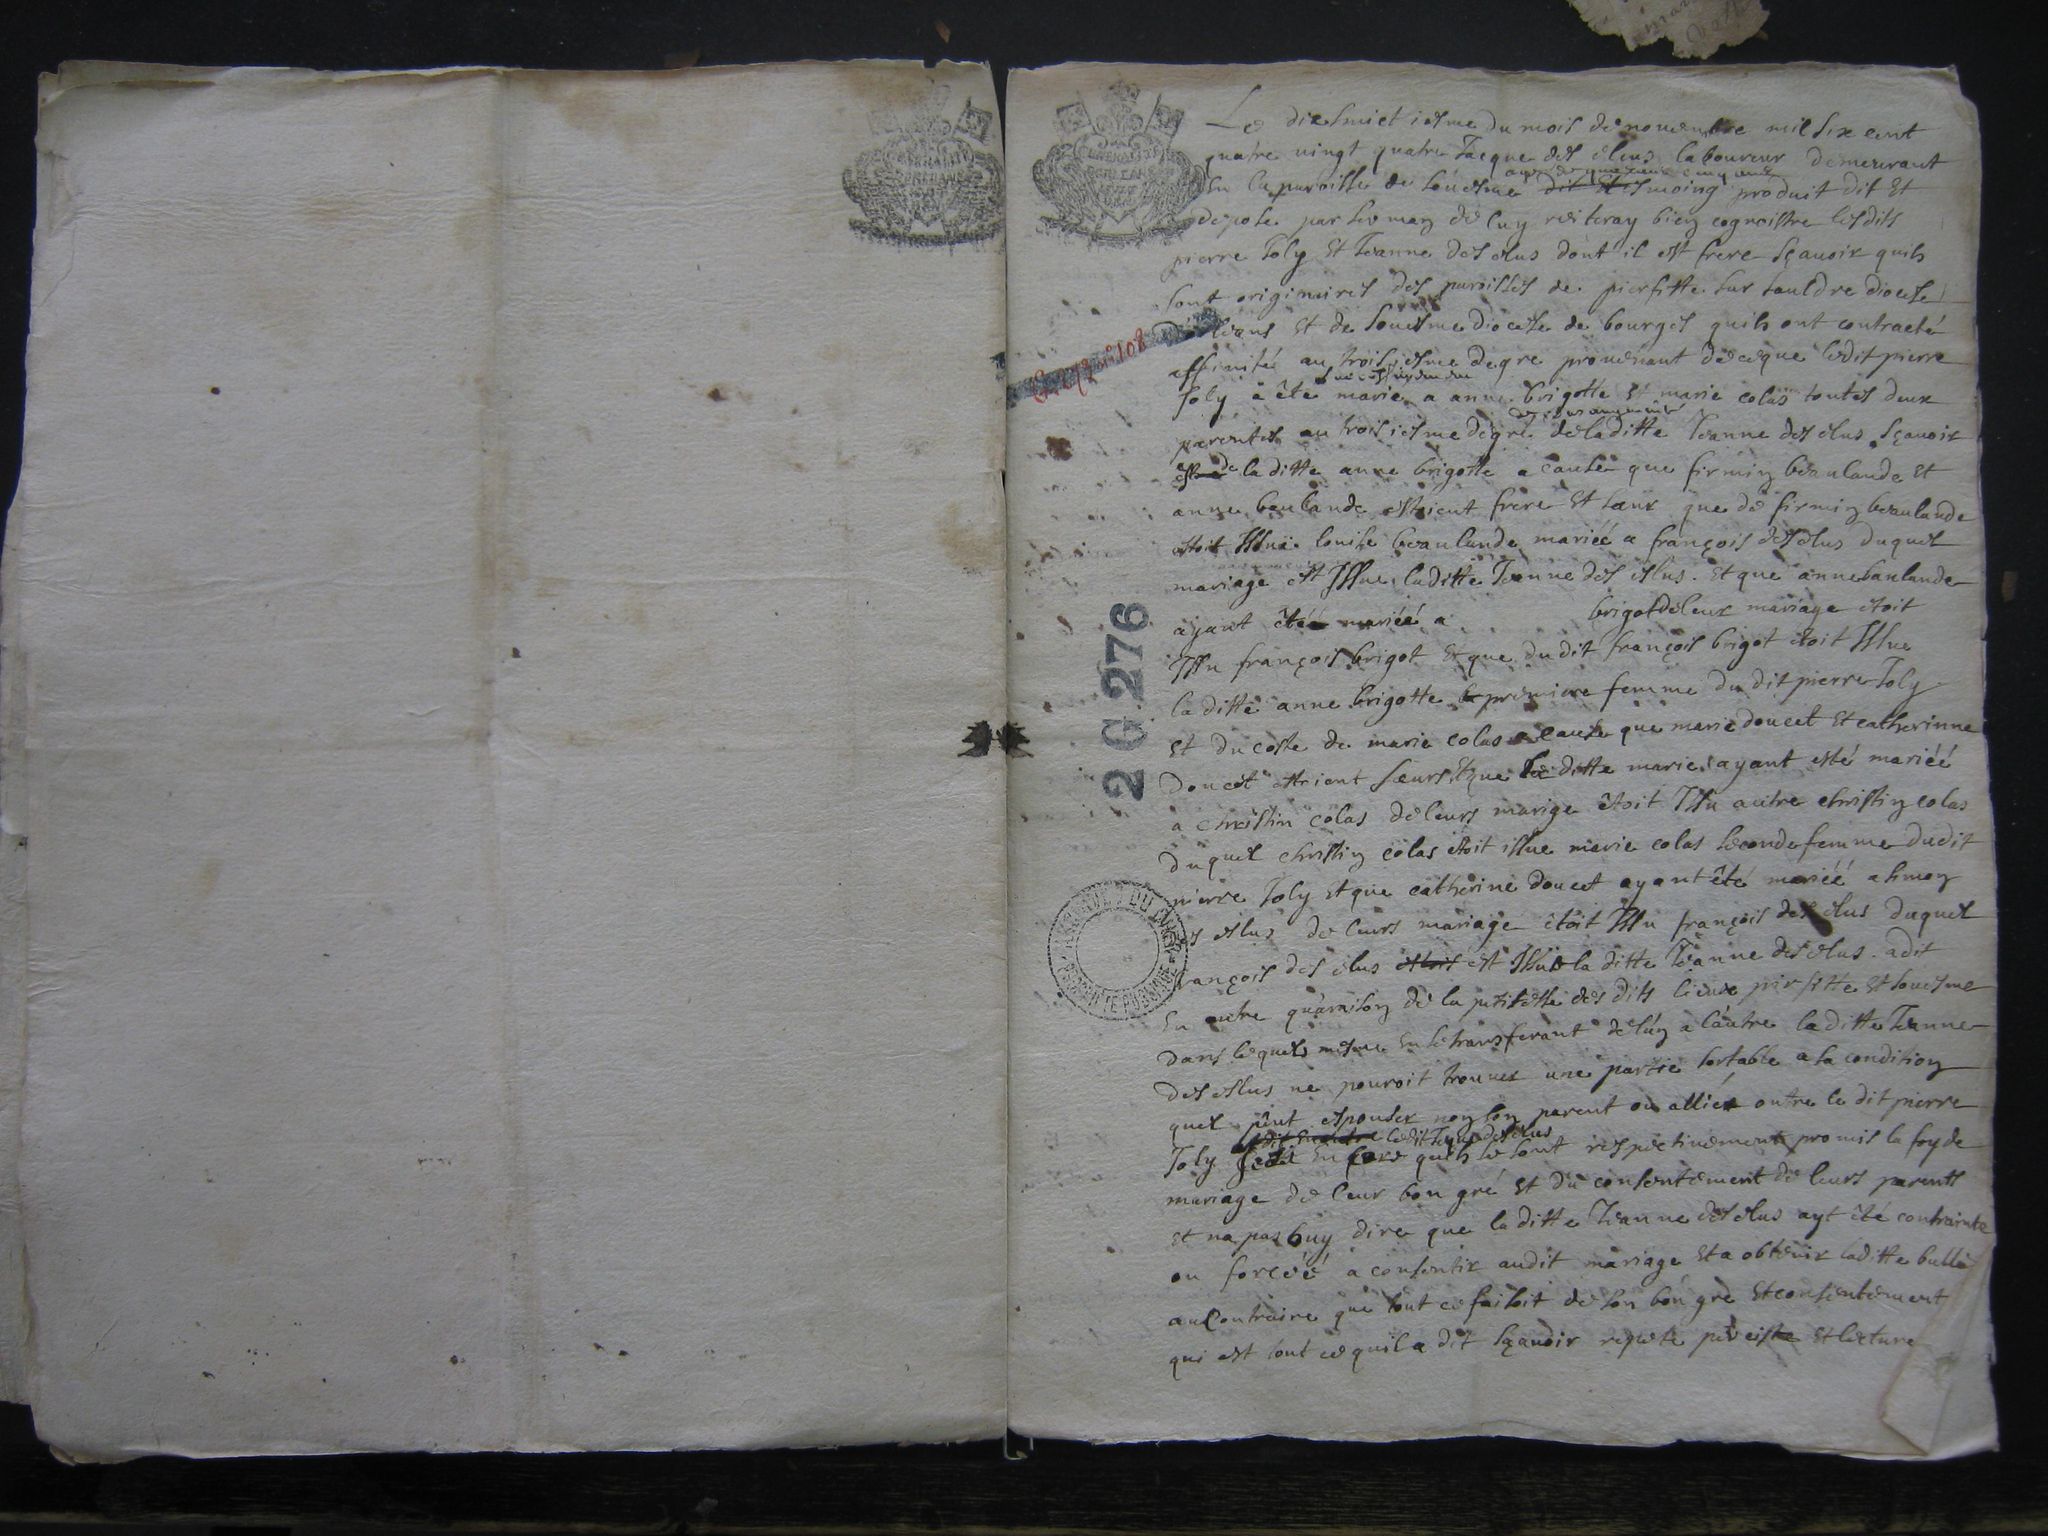 Le dixhuictiesme du mois de nouembre mil six cent
quatre vingt quatre Jacque des elus laboureur demeurant
En la paroisse de souesme aagé de quarente cinq ans tesmoing produit dit Et
depose par sermen de luy reiteray bien cognoistre lesdits
pierre Joly Et Jeanne des elus dont il est frere sçauoir quils
sont originaires des paroisses de pierfitte sur sauldre diocese
dorleans Et de Souesme diocese de bourges quils ont contracté
affinité au troisiesme degre prouenant de ce que ledit pierre
Joly a êté successiuement marie a anne brigotte Et marie colas toutes deux
parentes au troisiesme degré de laditte Jeanne des elus sçauoir
de la ditte anne brigotte a cause que firmin beaulande Et
anne baulande estoient frere Et sœur que de firmin beaulande
estoit Issuë louise beaulande mariéé a françois des elus duquel
mariage est Issue laditte Jeanne des eslus. Et que anne baulande
ayant êtéé mariéé a brigot de leur mariage etoit
Issu françois brigot Et que dudit françois brigot etoit Issue
la ditte anne brigotte premiere femme du dit pierre Joly
Et du coste de marie colas a cause que marie doucet Et catherinne
Doucet estoient seurs Et que la ditte marie ayant esté mariéé
a christin colas de leurs marige étoit Issu autre christin colas
duquel christin colas etoit issue marie colas seconde femme dudit
pierre Joly Et que catherine doucet ayant êté mariéé a simon
des eslus de leurs mariage étoit Issu françois des elus duquel
françois des elus estois est Issue la ditte Jeanne des elus. a dit
En outre quáraison de la petitesse des dits lieux pierfitte Et souesme
dans lequels mesme En se transferant de lún a láutre la ditte Jeanne
des eslus ne pouroit trouuer une partie sortable a sa condition
quel pût espouser non son parent ou alliéz outre le dit pierre
Joly dit En outre ledit Jacque des elus quils se sont respectiuement promis la foy de
mariage de leur bon gré Et du consentement de leurs parents
Et na pas ouy dire que la ditte Jeanne des elus ayt êté contrainte
ou forcéé a consentir audit mariage Et a obtenir laditte bulle
au Contraire que tout ce faisoit de son bon gré Et consentement
qui est tout ce quil a dit sçauoir Et lecture
2 G 276
GENERALITE
ORLEANS
ARCHIVES DU CHER
PROPRIETE PUBLIQUE